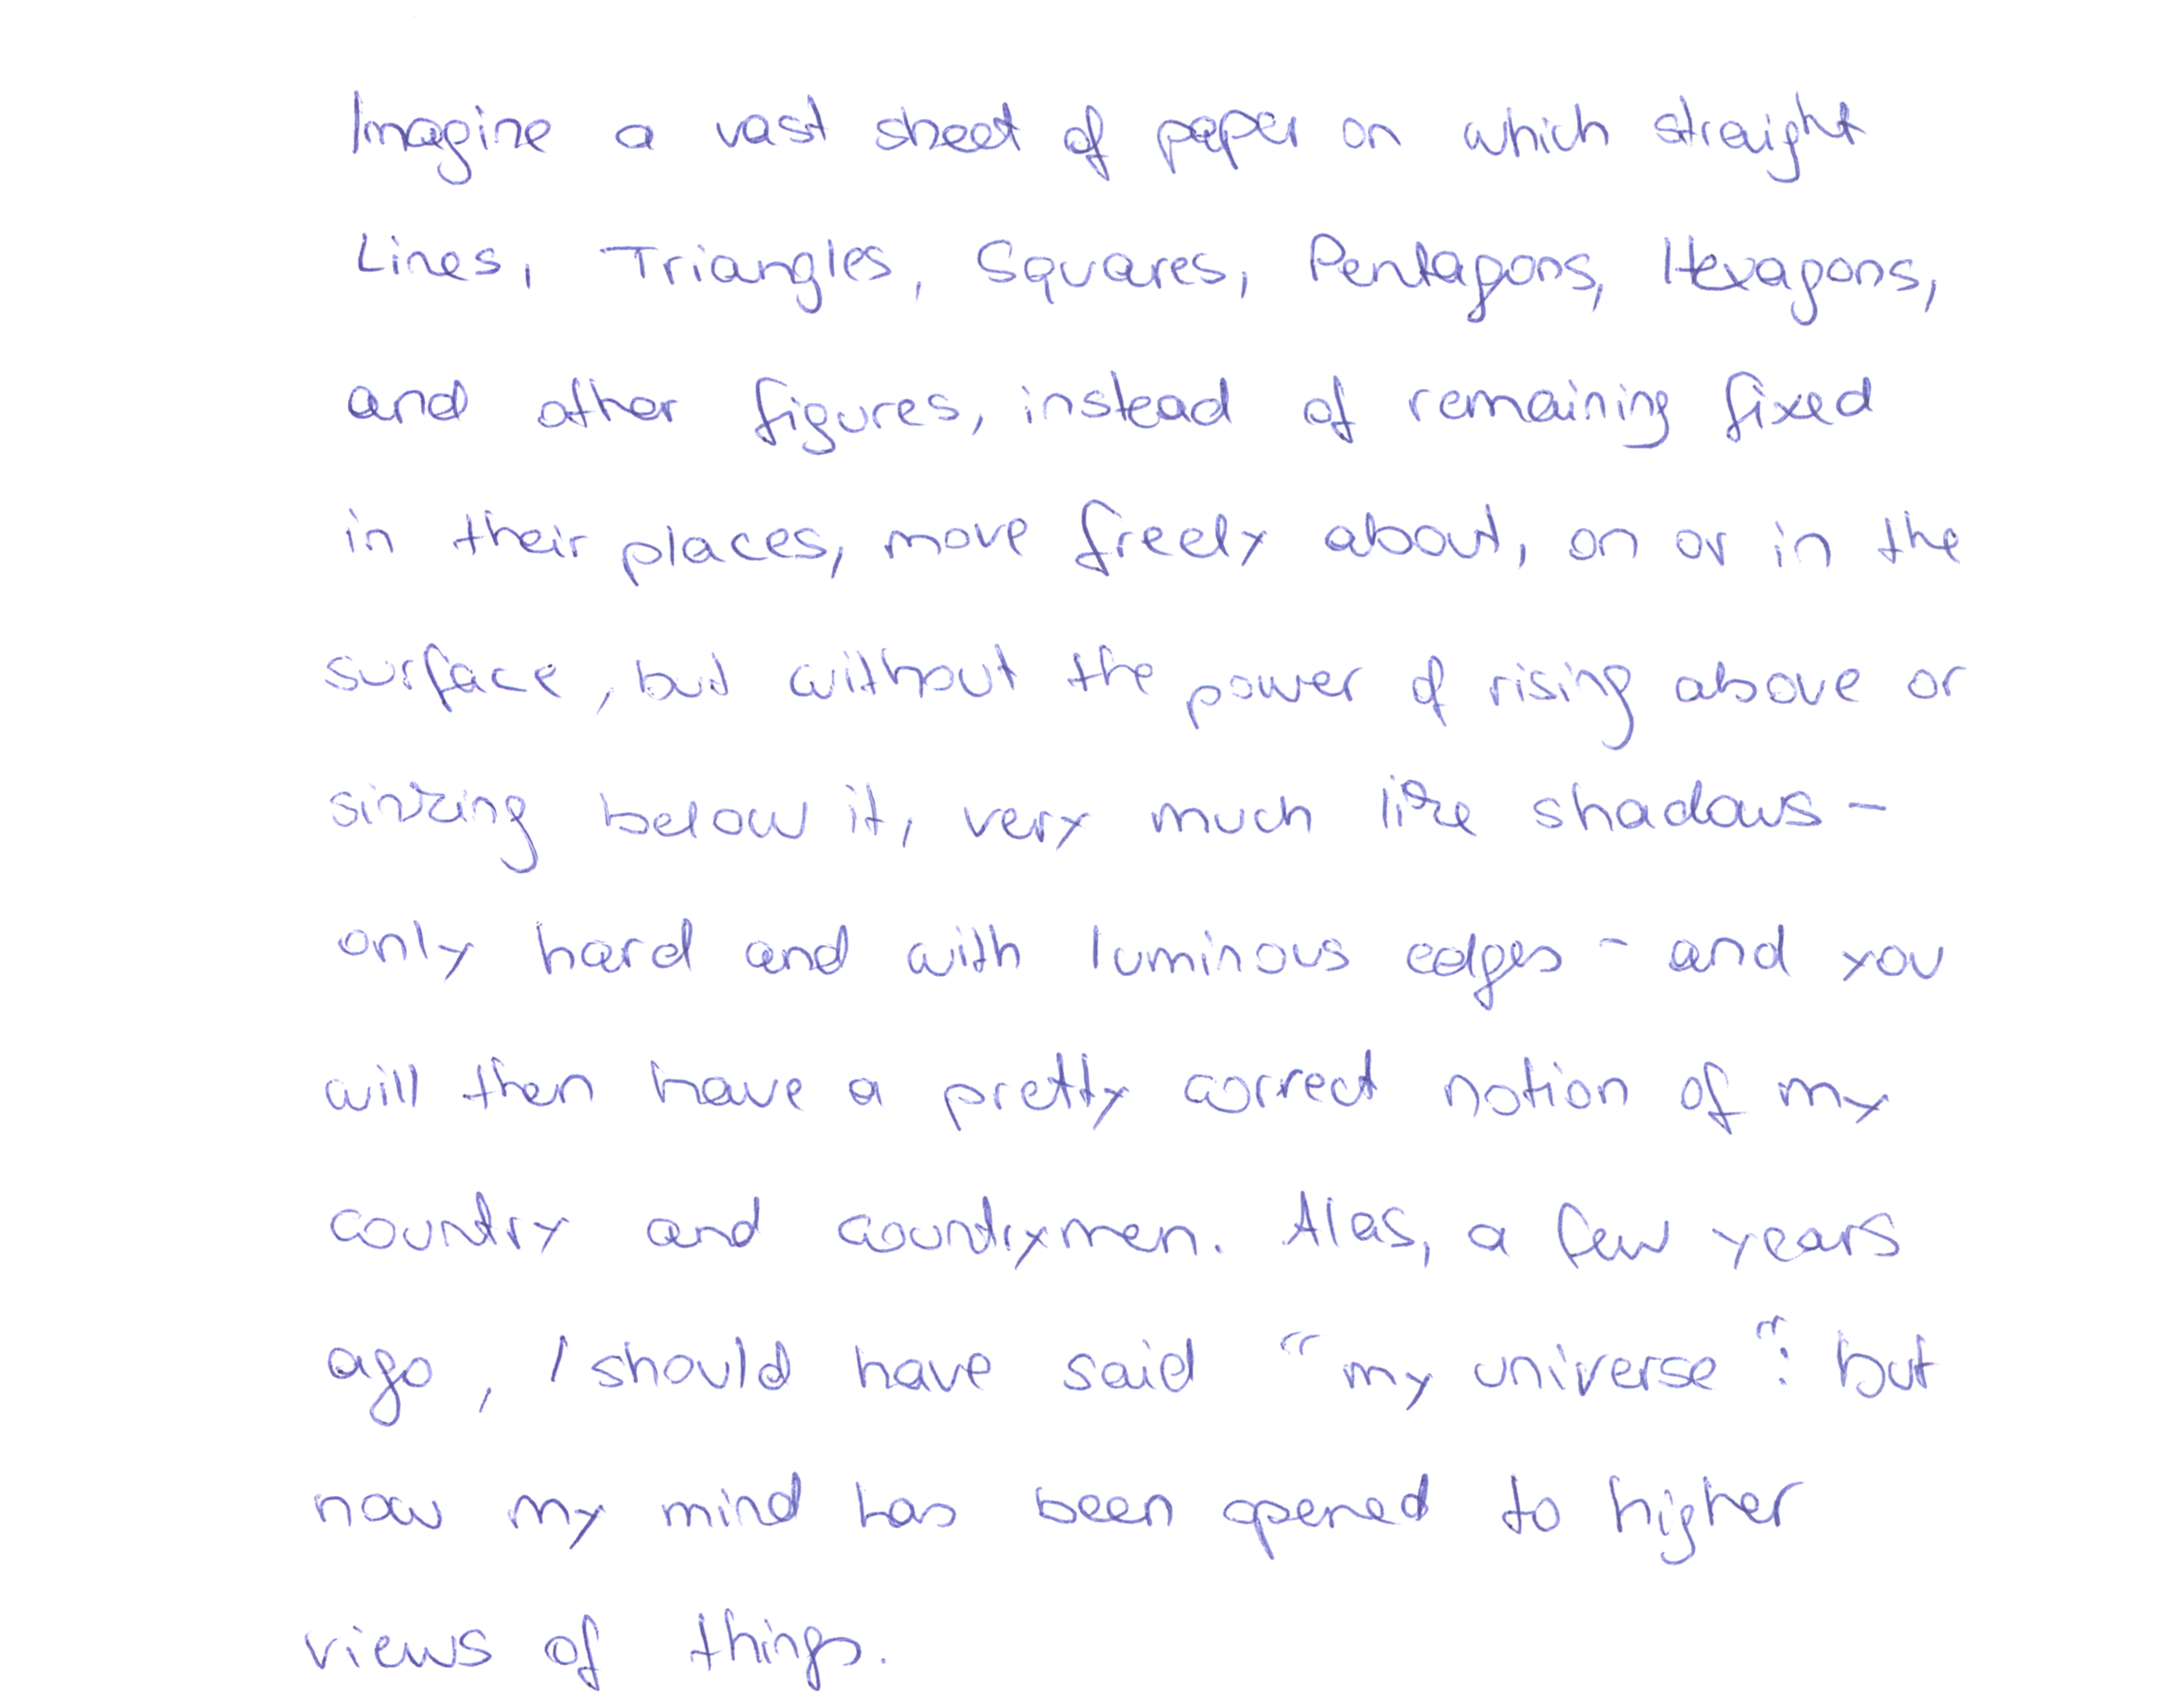 Imagine a vast sheet of paper on which straight
Lines, Triangles, Squares, Pentagons, Hexagons,
and other figures, instead of remaining fixed
in their places, move freely about, on or in the
surface, but without the power of rising above or
sinking below it, very much like shadows -
only hard and with luminous edges - and you
will then have a pretty correct notion of my
country and countrymen. Alas, a few years
ago, I should have said "my universe": but
now my mind has been opened to higher
views of things.